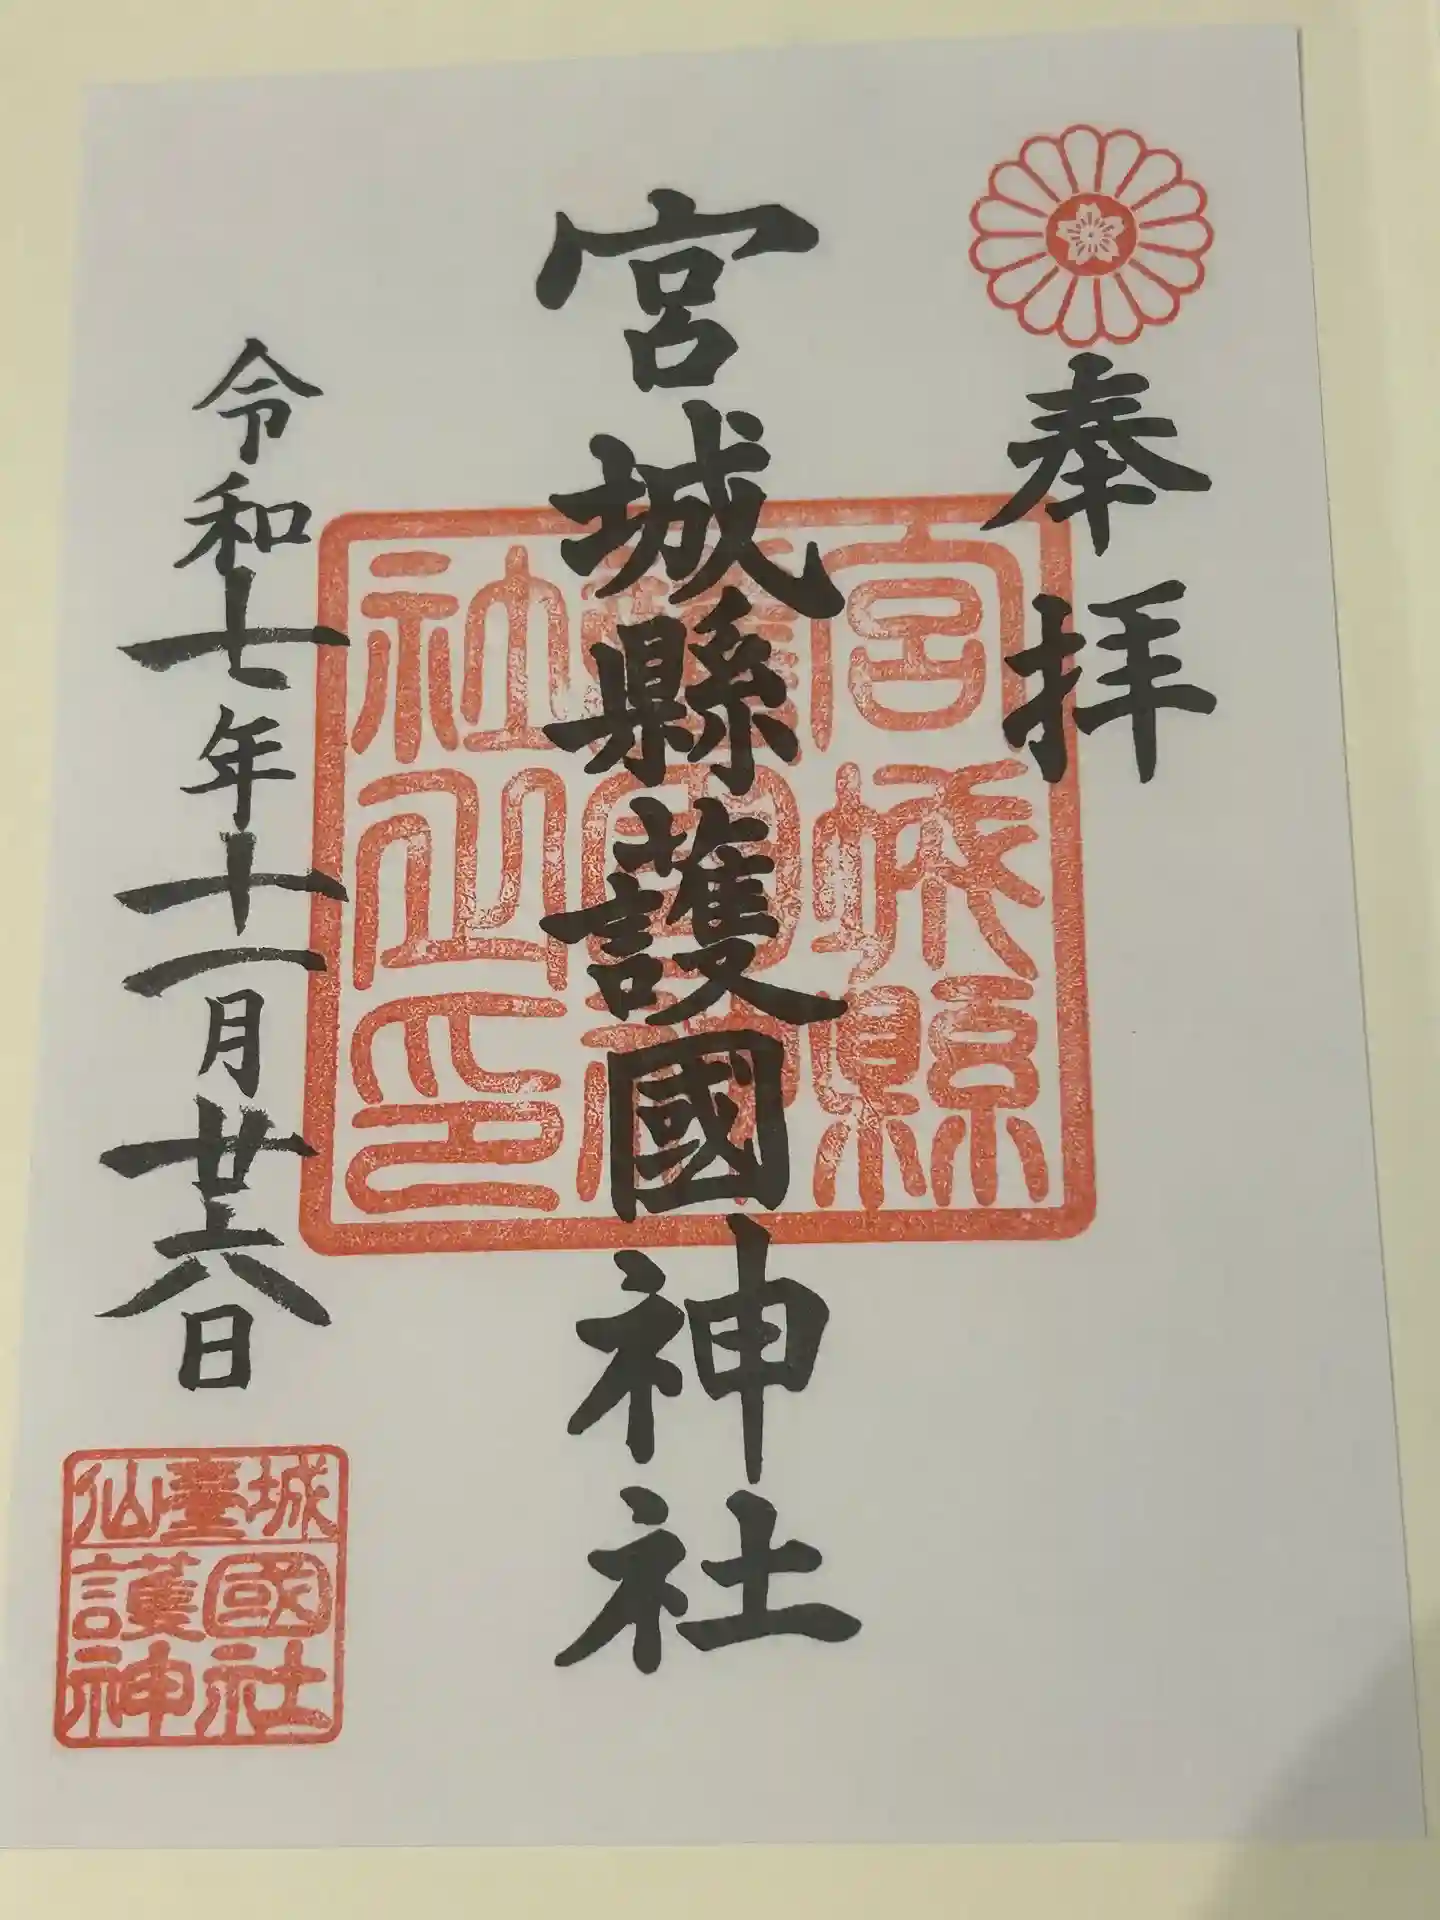 奉拝
宮城縣護國神社
宮城縣
護國神
社之印
令和七年十一月廿六日
仙臺城
護國
神社